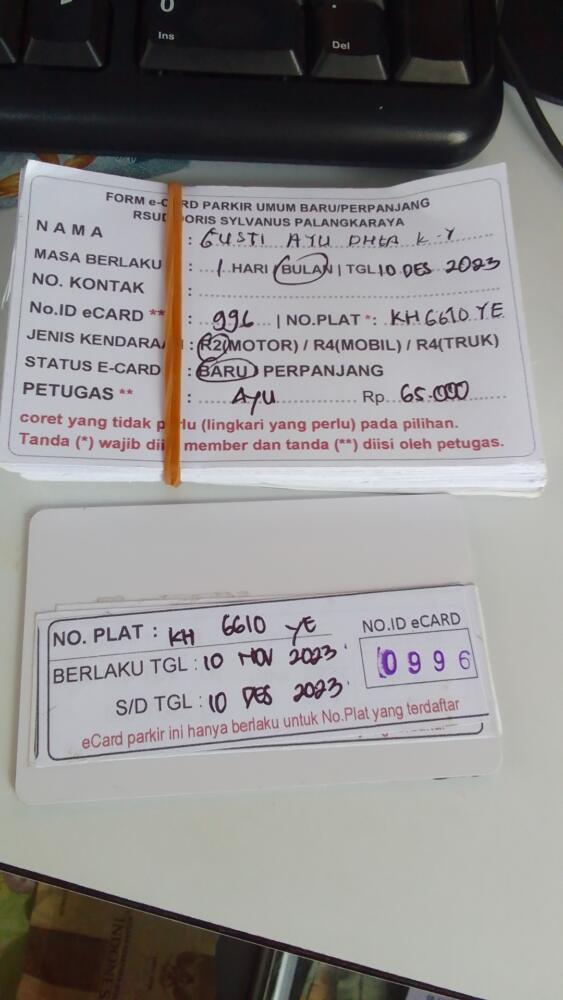 0
Ins
.
Del
FORM e-C RD PARKIR UMUM BARU/PERPANJANG
RSUD DORIS SYLVANUS PALANGKARAYA
NAMA : GUSTI AYU K.Y
MASA BERLAKU : 1 HARI / BULAN | TGL 10 DES 2023
NO. KONTAK :
No.ID eCARD ** : 996 | NO.PLAT *: KH 6610 YE
JENIS KENDARA : R2(MOTOR) / R4(MOBIL) / R4(TRUK)
STATUS E-CARD : BARU / PERPANJANG
PETUGAS ** : AYU Rp 65.000
coret yang tidak p lu (lingkari yang perlu) pada pilihan.
Tanda (*) wajib dii member dan tanda (**) diisi oleh petugas.
NO. PLAT : KH 6610 YE
NO.ID eCARD
BERLAKU TGL : 10 NOV 2023
0996
S/D TGL : 10 DES 2023
eCard parkir ini hanya berlaku untuk No.Plat yang terdaftar